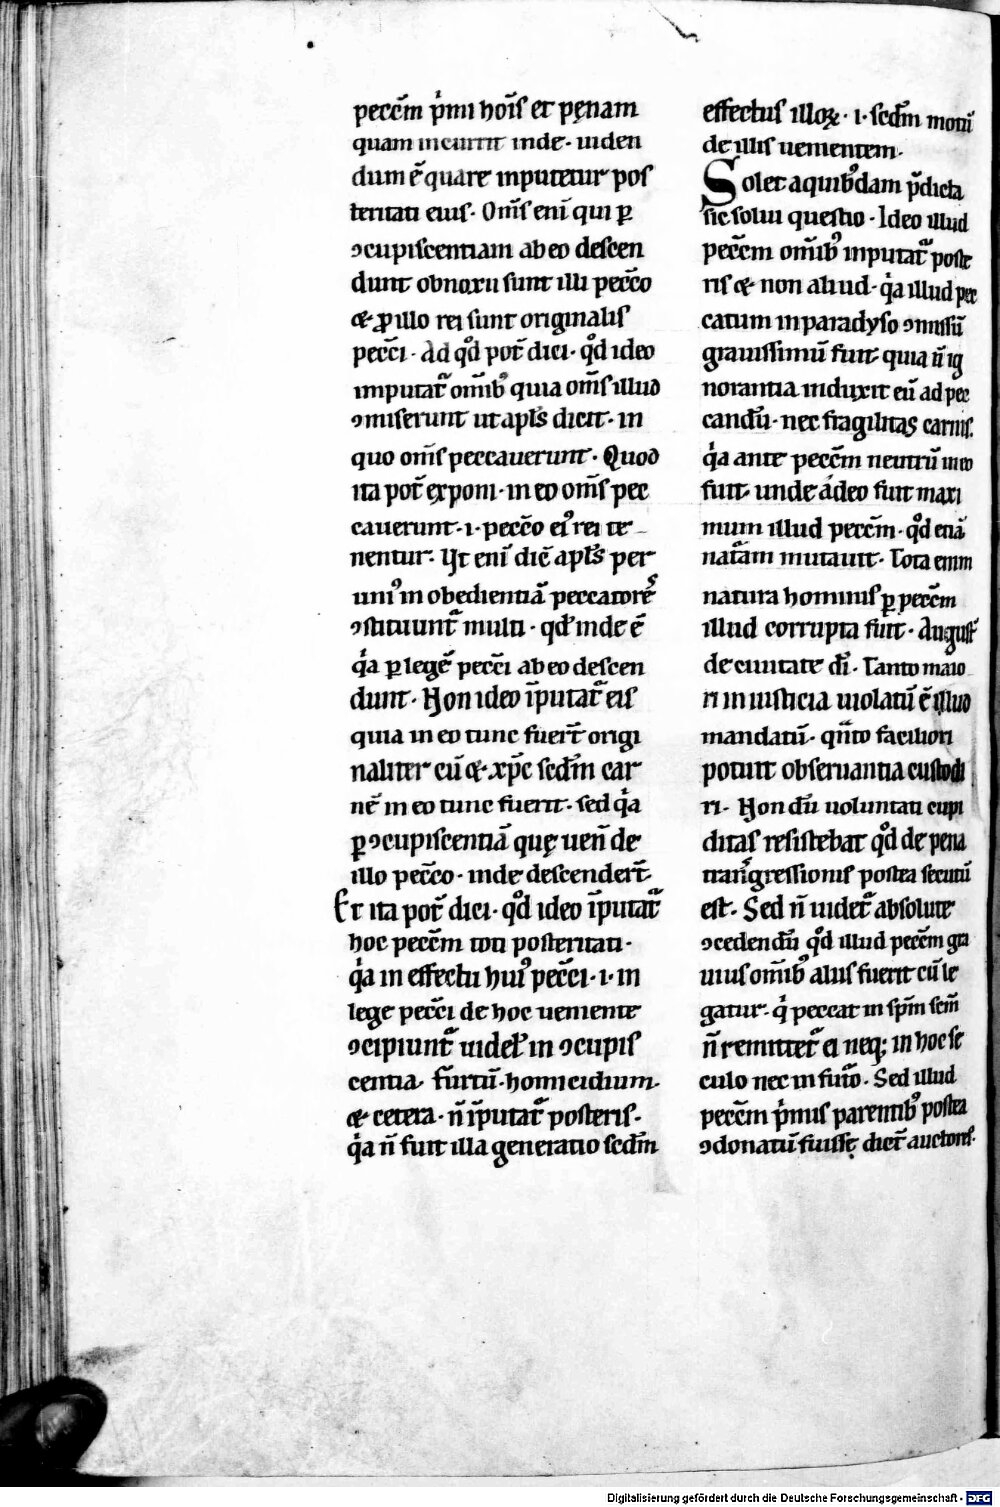 pecc̄m p̍mi hoı̄s et pęnam
quam incurrit inde· uiden
dum ē quare inputetur pos
teritati eius· Om̄s enī qui ꝑ
ꝯcupiscentiam ab eo descen
dunt obnoxii sunt illi pecc̄o
⁊ ꝓ illo rei sunt originalis
pecc̄i· Ad qd̾ pot̄ dici· qd̾ ideo
imputat᷑ om̄ibꝰ quia om̄s illud
ꝯmiserunt ut apl̄s dicit· in
quo om̄s peccauerunt· Quod
ita pot̄ exponi· in eo om̄s pec
cauerunt·i·pecc̄o eiꝰ rei te
nentur· Vt enī dic̄ apl̄s per
uniꝰ inobedientiā peccatores
ꝯstituunt᷑ multi· qd̾ inde ē
q̍a ꝑ legē pecc̄i ab eo descen
dunt· Non ideo īputat᷑ eis
quia in eo tunc fuer̄t origi
naliter cū ⁊ xp̄c scd̄m car
nē in eo tunc fuerit· sed q̍a
ꝑ ꝯcupiscentiā quę uen̄ de
illo pecc̄o· inde descender̄t·
Et ita pot̄ dici· qd̾ ideo īputat᷑
hoc pecc̄m toti posteritati·
q̍a in effectu huiꝰ pecc̄i·i·in
lege pecc̄i de hoc ueniente
ꝯcipiunt᷑ uidel̄ in ꝯcupis
centia· furtū· homicidium·
⁊ cetera· n̄ īputat᷑ posteris·
q̍a n̄ fuit illa generatio scd̄m
effectus illoꝝ·i·scd̄m motū
de illis uementem·
Solet a quibꝰdam p̄dicta
sic solui questio· Ideo illud
pecc̄m om̄ibꝰ inputat᷑ poste
ris ⁊ non aliud· q̍a illud pec
catum in paradyso ꝯmissū
grauissimū fuit· quia n̄ ig
norantia induxit eū ad pec
candū· nec fragilitas carnis·
q̍a ante pecc̄m neutrū in eo
fuit· unde adeo fuit maxi
mum illud pecc̄m· qd̾ etiā
nat᷑am mutauit· Tota enim
natura hominis ꝑ pecc̄m
illud corrupta fuit· August̄
de ciuitate dī· Tanto maio
ri iniusticia uiolatū ē illud
mandatū· qn̄to faciliori
potuit obseruantia custodi
ri· Non dū uoluntati cupi
ditas resistebat qd̾ de pena
transgressionis postea secutū
est· Sed n̄ uidet᷑ absolute
ꝯcedendū qd̾ illud pecc̄m gra
uius om̄ibꝰ aliis fuerit cū le
gatur· q̍ peccat in sp̄m sc̄m
n̄ remittet᷑ ei neq; in hoc se
culo nec in futo̾· Sed illud
pecc̄m p̍mis parentibꝰ postea
ꝯdonatū fuisse dic̄t auctores·
Digitalisierung gefördert durch die Deutsche Forschungsgemeinschaft - DFG